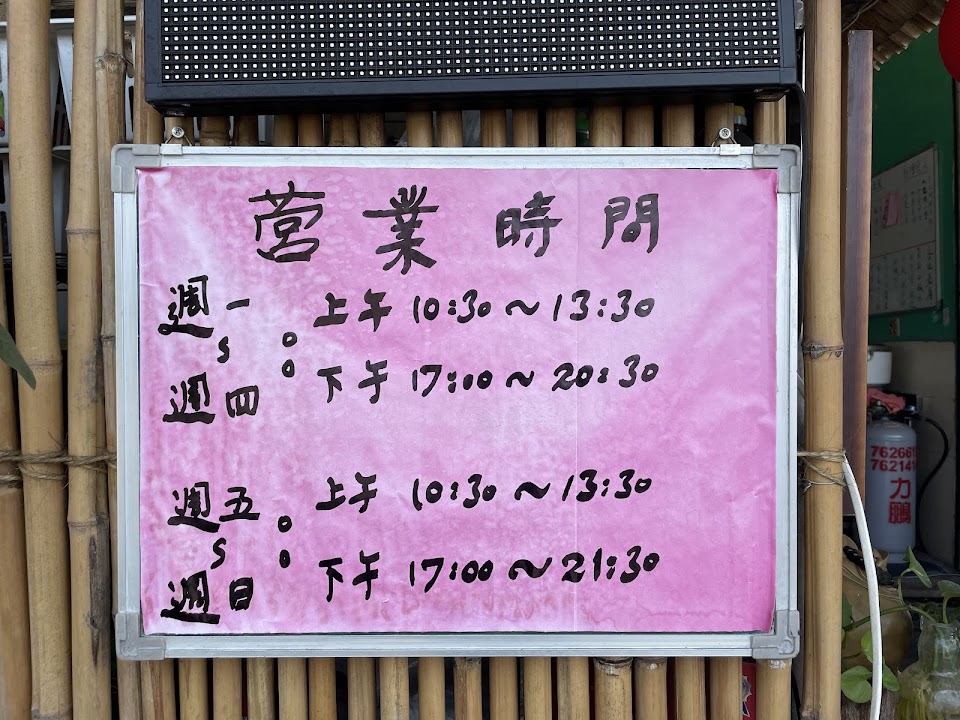 営業時間
週一
上午 10:30～13:30
S
週四
下午 17:00～20:30
週五
上午 10:30～13:30
S
週日
下午 17:00～21:30
力鵬